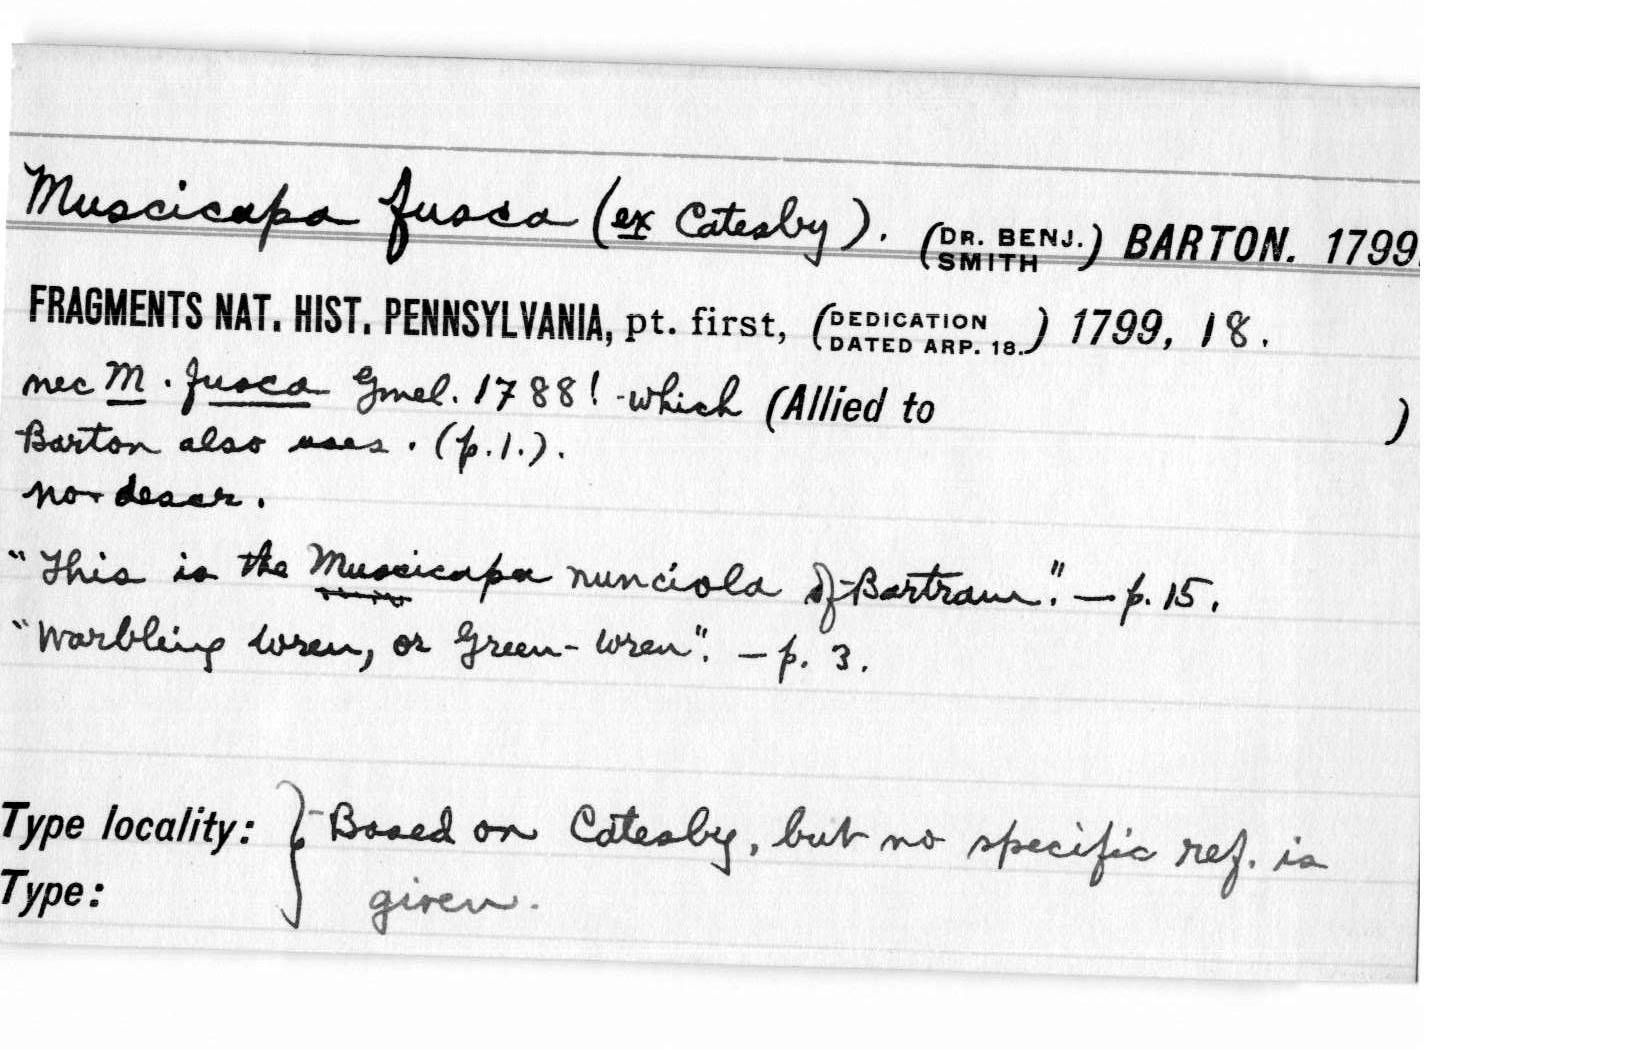 Muscicapa fusca (ex Catesby). (DR. BENJ. SMITH) BARTON. 1799.
FRAGMENTS NAT. HIST. PENNSYLVANIA, pt. first, (DEDICATION DATED ARP. 18.) 1799, 18.
nec M. fusca Gmel. 1788! which (Allied to )
Barton also uses. (p.1.).
no descr.
"This is the Muscicapa nunciola of Bartram". — p. 15.
"Warbling wren, or Green-wren". — p. 3.
Type locality: } Based on Catesby, but no specific ref. is
Type: given.